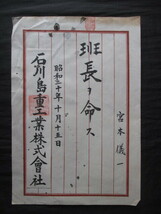 宮本 儀一
班長ヲ命ス
昭和二十年十月十五日
石川島重工業株式會社